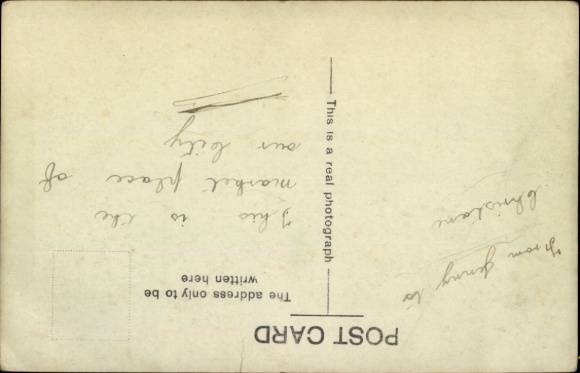 POST CARD
This is a real photograph
The address only to be
written here
From Jenny to
Christiane
This is the
market place of
our city